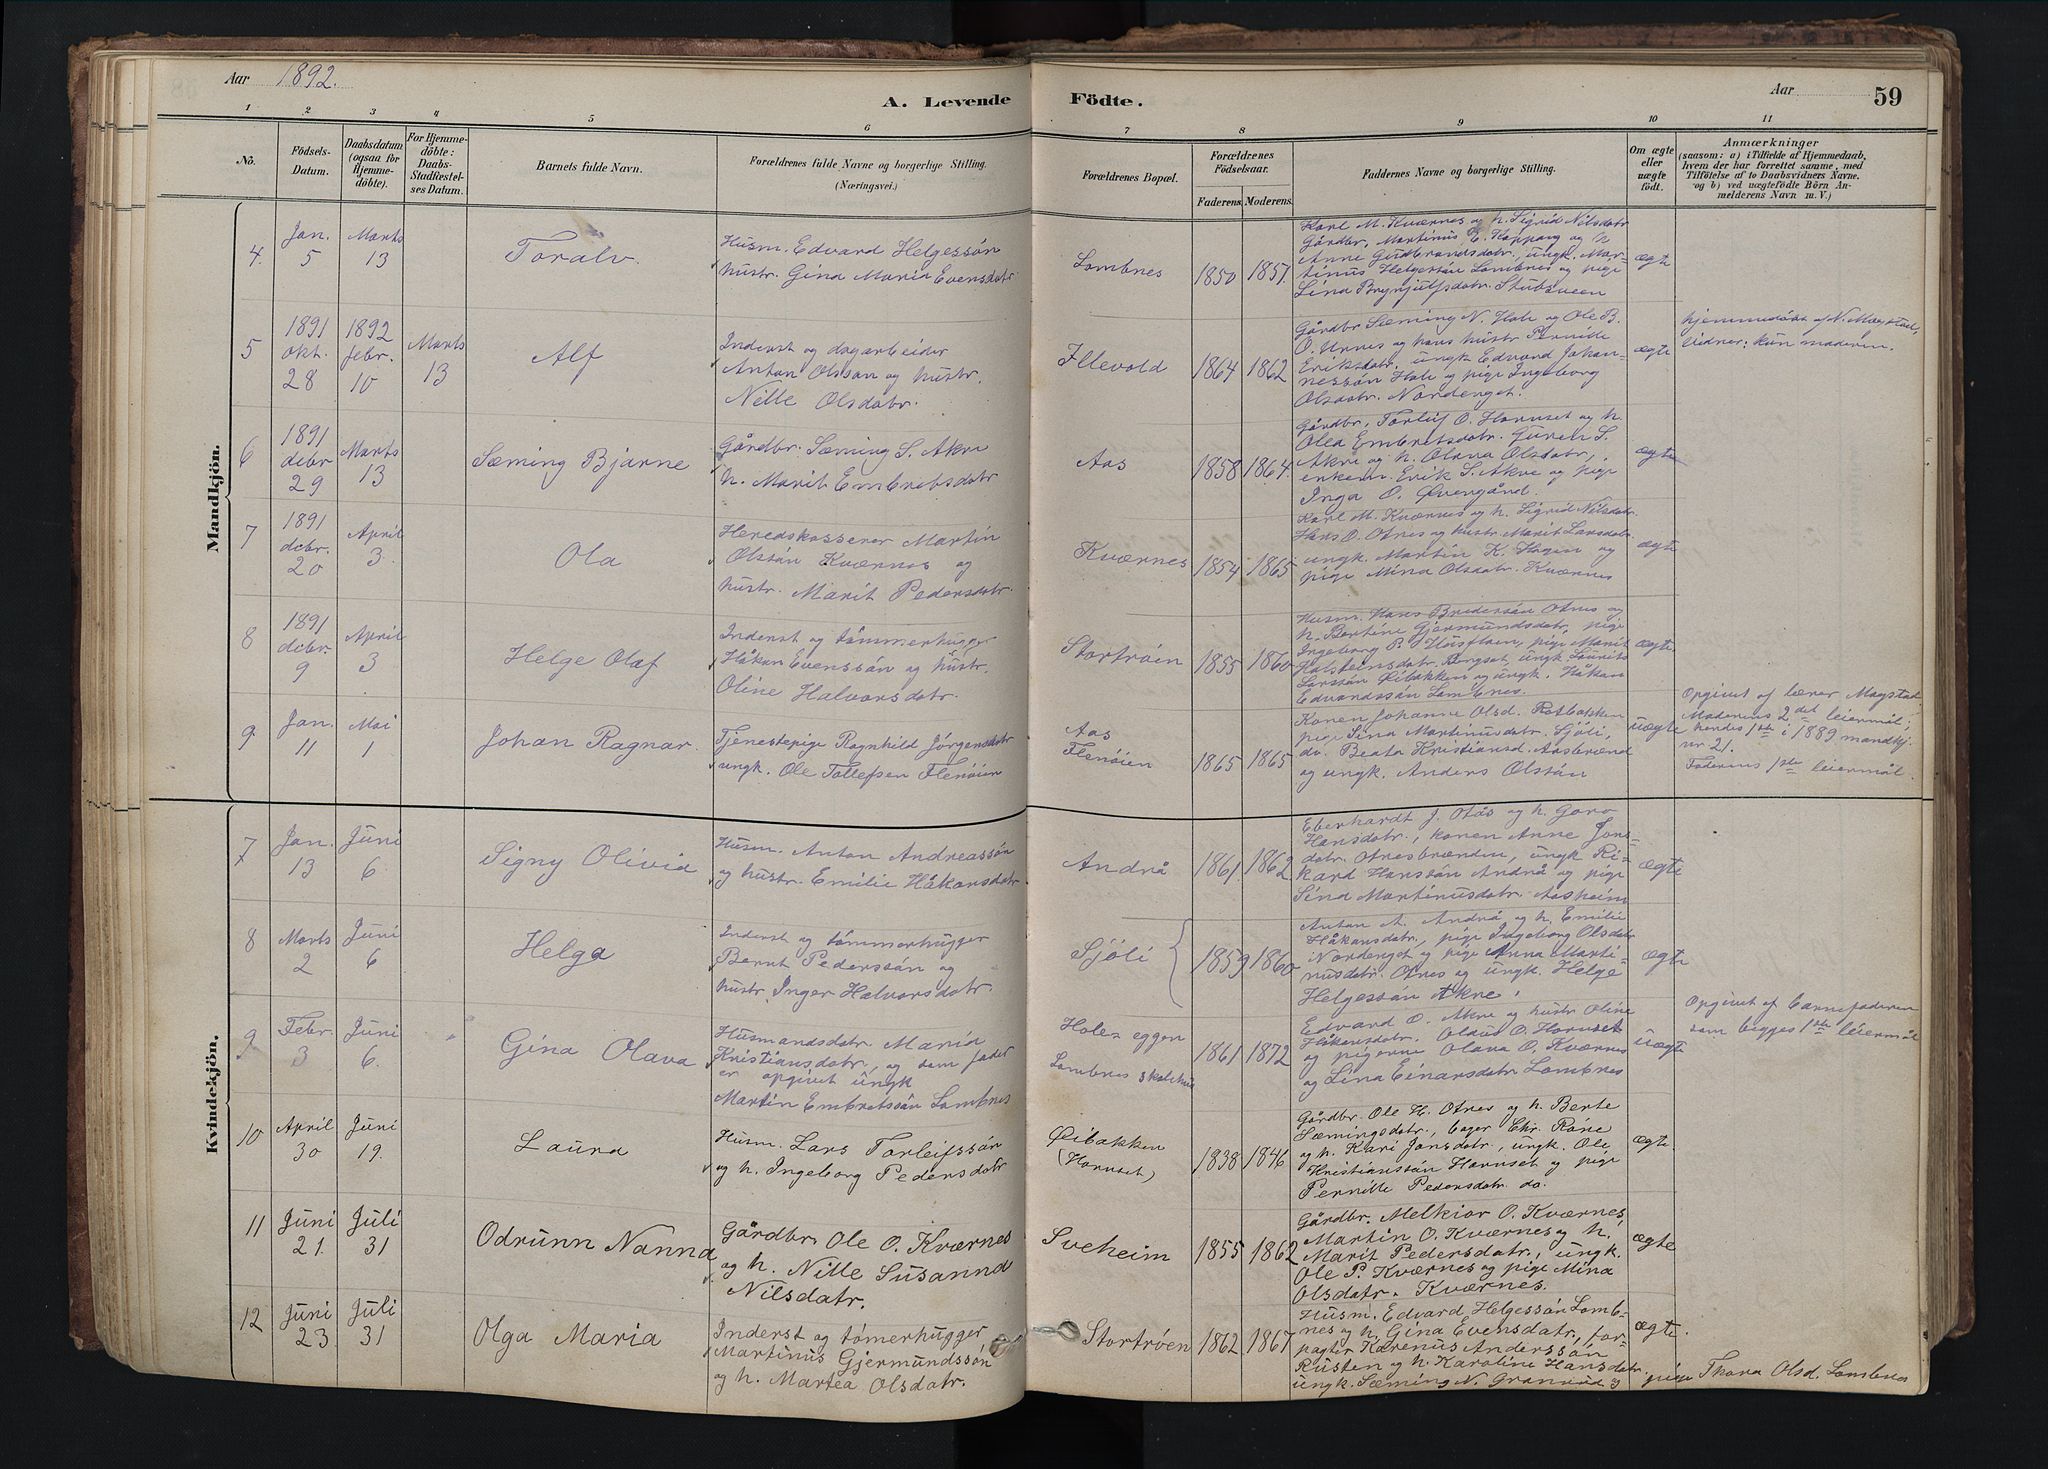 Aar 1892.
A. Levende Födte.
Aar 59
1 2 3 4 5 6 7 8 9 10 11
No.
Födsels-Datum.
Daabsdatum (ogsaa for Hjemmedöbte).
For Hjemmedöbte: Daabs-Stadfæstelses Datum.
Barnets fulde Navn.
Forældrenes fulde Navne og borgerlige Stilling. (Næringsvei.)
Forældrenes Bopæl.
Forældrenes Födselsaar. Faderens. Moderens.
Faddernes Navne og borgerlige Stilling.
Om ægte eller uægte födt.
Anmærkninger
(saasom: a) i Tilfælde af Hjemmedaab, hvem der har forrettet samme, med Tilföielse af to Daabsvidners Navne, og b) ved uægtefödte Börn Anmelderens Navn m. V.)
Mandkjön.
4.
Jan. 5
Marts 13
Toralv.
Husm. Edvard Helgessön
hustr. Gina Maria Evensdatr
Lombnes
1850 1851.
Karl M. Kværnes og h. Sigrid Nilsdatr
Gårdbr. Martinus E. Koppang og h
Anne Gudbrandsdatr., ungk. Mar-
tinus Helgessön Lombnes og pige
Lina Brynjulfsdatr. Stubsveen
ægte
5
1891 okt. 28
1892 febr. 10
Marts 13
Alf
Inderst og dagarbeider
Anton Olsson og hustr.
Nille Olsdatr.
Illevold
1864 1862
Gårdbr Sæming N. Hole og Ole B.
O. Urnes og hans hustr Pernille
Eriksdatr. ungk Edvard Johan-
nessön Hole og pige Ingeborg
Olsdatr. Nordenget.
ægte
hjemmedöbt af N. Magstad,
vidner: kun moderen.
6
1891 debr 29
Marts 13
Sæming Bjarne
Gårdbr. Sæming S. Akre
h. Marit Embretsdatr
Aas
1858 1864.
Gårdbr. Torleif O. Hornset og h.
Olea Embretsdatr. Guren S.
Akre og h. Olava Olsdatr,
enkem. Erik S. Akre og pige
Inga O. Øvengånd.
ægte
7
1891 debr. 20
April 3.
Ola
Heredskasserer Martin
Olssön Kværnes og
hustr. Marit Pedersdatr.
Kværnes
1854 1865
Karl M. Kværnes og h. Sigrid Nilsdatr.
Hans O. Otnes og hustr Marit Larsdatr.
ungk. Martin K. Hagen og
pige Mina Olsdatr. Kværnes
ægte
8
1891 debr. 9
April 3
Helge Olaf
Inderst og tömmerhugger
Håkan Evenssön og hustr.
Oline Halvorsdatr.
Stortröen
1855 1860
Husm. Hans Bredessön Otnes og
h. Bertine Gjermundsdatr, pige
Ingeborg P. Husfloen, pige Marit
Halsteinsdatr. Bergset, ungk. Laurits
Larssön Øibakken og ungk. Håkan
Edvardssön Lombnes.
ægte
9.
Jan. 11
Mai 1
Johan Ragnar.
Tjenestepige Ragnhild Jörgensdatr
ungk. Ole Tollefsen Flenöien
Aas
Flenöien
1865 1865
Konen Johanne Olsd. Rotbakken
pige Lina Martinusdatr. Sjöli,
do. Beata Kristiansd. Aasbrænd
og ungk. Anders Olssön
uægte
Opgivet af lærer Magstad.
Moderens 2det leiermål;
hendes 1ste i 1889 mandkj.
nr 21.
Faderens 1ste leiermål.
Kvindekjön.
7
Jan. 13
Juni 6.
Signy Olivia
Husm. Anton Andreassön
og hustr. Emilie Håkansdatr
Andrå
1861. 1862
Eberhardt J. Otås og h. Goro
Hansdatr., konen Anne Jons-
datr. Otnesbrænden, ungk Ri-
kard Hanssön Andrå og pige
Lina Martinusdatr. Aasheim
ægte
8
Marts 2
Juni 6
Helga
Inderst og tömmerhugger
Bernt Pederssön og
hustr. Inger Halvorsdatr.
Sjöli
1859 1860
Anton A. Andrå og h. Emilie
Håkansdatr., pige Ingeborg Olsdatr
Nordenget og pige Anna Marti-
nusdatr. Otnes og ungk. Helge
Helgessön Akre.
ægte
9
Febr. 3
Juni 6.
Gina Olava
Husmandsdatr. Maria
Kristiansdatr., og som fader
er opgivet ungk
Martin Embretssön Lombnes
Holes eggen
Lombnes skolehus
1861 1872
Edvard O. Akre og hustr Oline
Håkansdatr. Oldus O. Hornset
og pigerne Olava O. Kværnes
og Lina Einarsdatr Lombnes
uægte
Opgivet af barnefaderen
som begges 1ste leiermål
10
April 30
Juni 19.
Laura
Husm. Lars Torleifssön
og h. Ingeborg Pedersdatr
Øibakken
(Hornset)
1838 1846
Gårdbr. Ole H. Otnes og h. Berte
Sæmingsdatr., bager Chr. Rone
og h. Kari Jonsdatr., ungk. Ole
Kristianssön Hornset og pige
Pernille Pedersdatr. do.
ægte.
11
Juni 21.
Juli 31
Odrunn Nanna
Gårdbr. Ole O. Kværnes
og h. Nille Susanna
Nilsdatr.
Sveheim
1855 1862
Gårdbr. Melkior O. Kværnes,
Martin O. Kværnes og h.
Marit Pedersdatr., ungk.
Ole P. Kværnes og pige Mina
Olsdatr. Kværnes.
ægte
12
Juni 23.
Juli 31
Olga Maria
Inderst og tömerhugger
Martinus Gjermundssön
og h. Martea Olsdatr.
Stortröen
1862 1867
Husm. Edvard Helgessön Lomb-
nes og h. Gina Evensdatr, for-
pagter Karenus Anderssön
Rusten og h. Karoline Hansdatr
ungk. Sæming N. Granrud og
pige Thora Olsd. Lombnes
ægte.